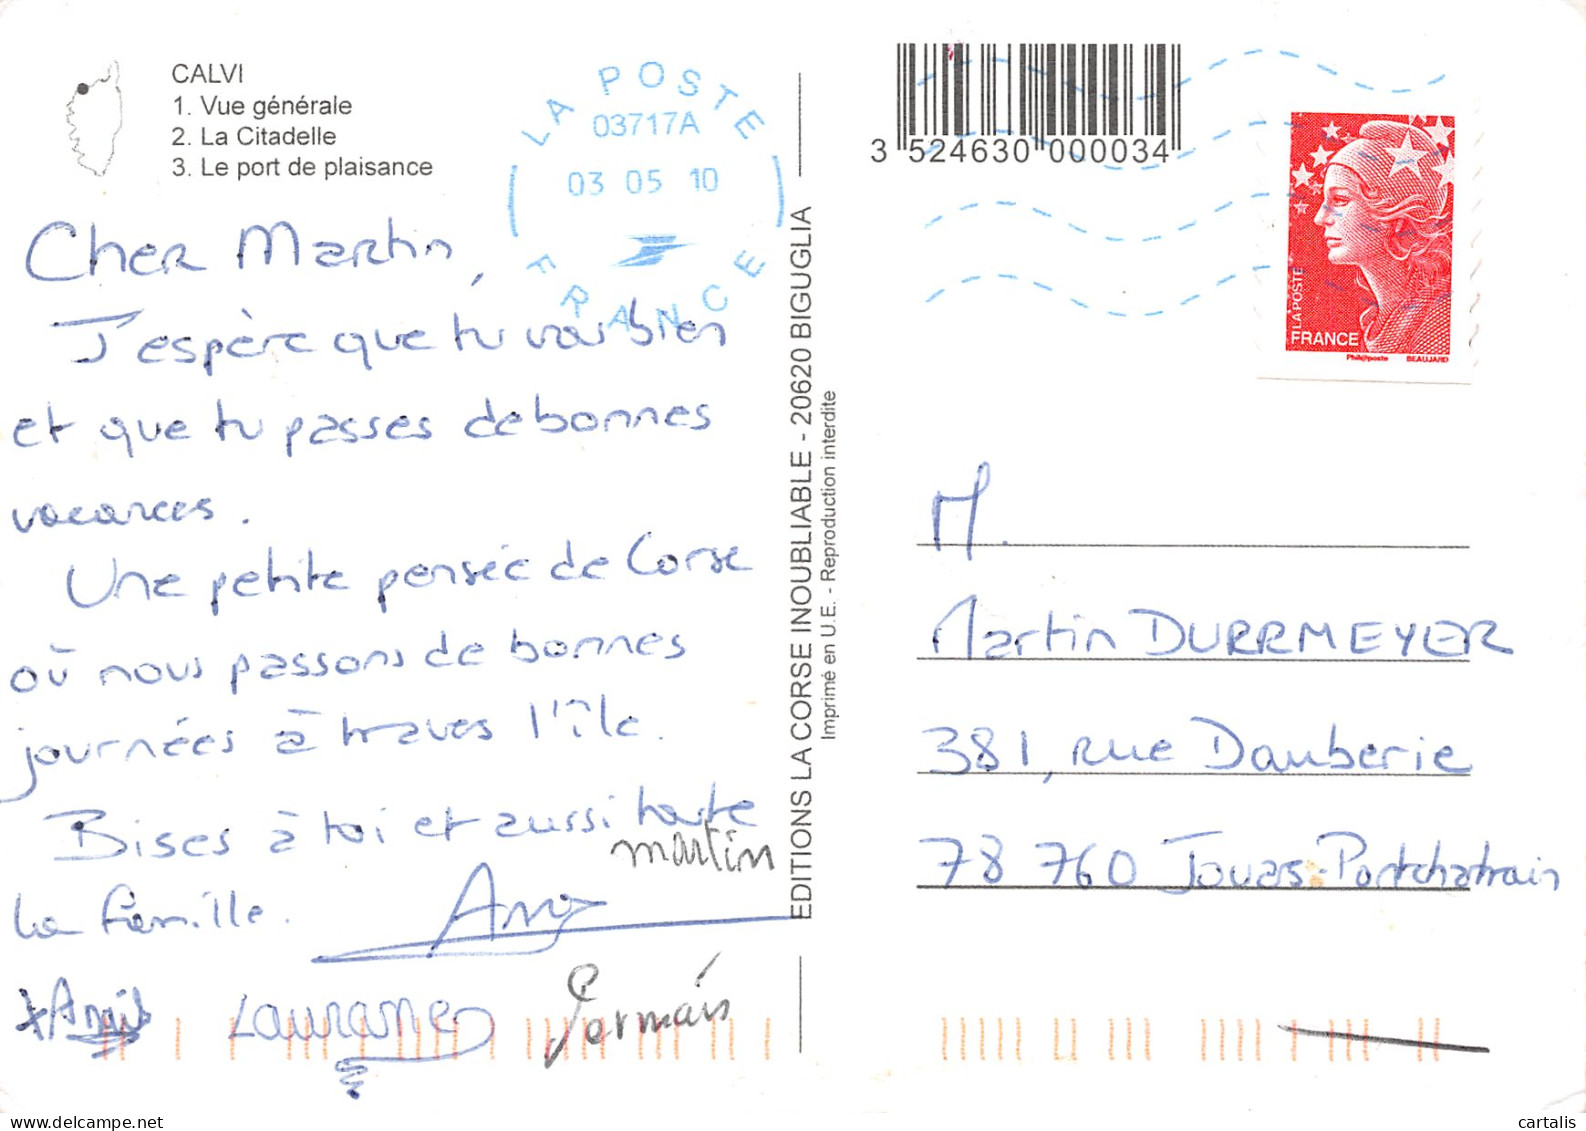 CALVI
1. Vue générale
2. La Citadelle
3. Le port de plaisance
LA POSTE
03717A
03 05 10
FRANCE
3 524630 000034
LA POSTE
FRANCE
Phil@poste BEAUJARD
Cher Martin,
J'espère que tu vas bien
et que tu passes de bonnes
vacances.
Une petite pensée de Corse
où nous passons de bonnes
journées à travers l'île.
Bises à toi et aussi toute
la famille.
martin
Laurane
Germain
EDITIONS LA CORSE INOUBLIABLE - 20620 BIGUGLIA
Imprimé en U.E. - Reproduction interdite
M.
Martin DURRMEYER
381, rue Dauberie
78 760 Jouars-Pontchatrain
cartalis